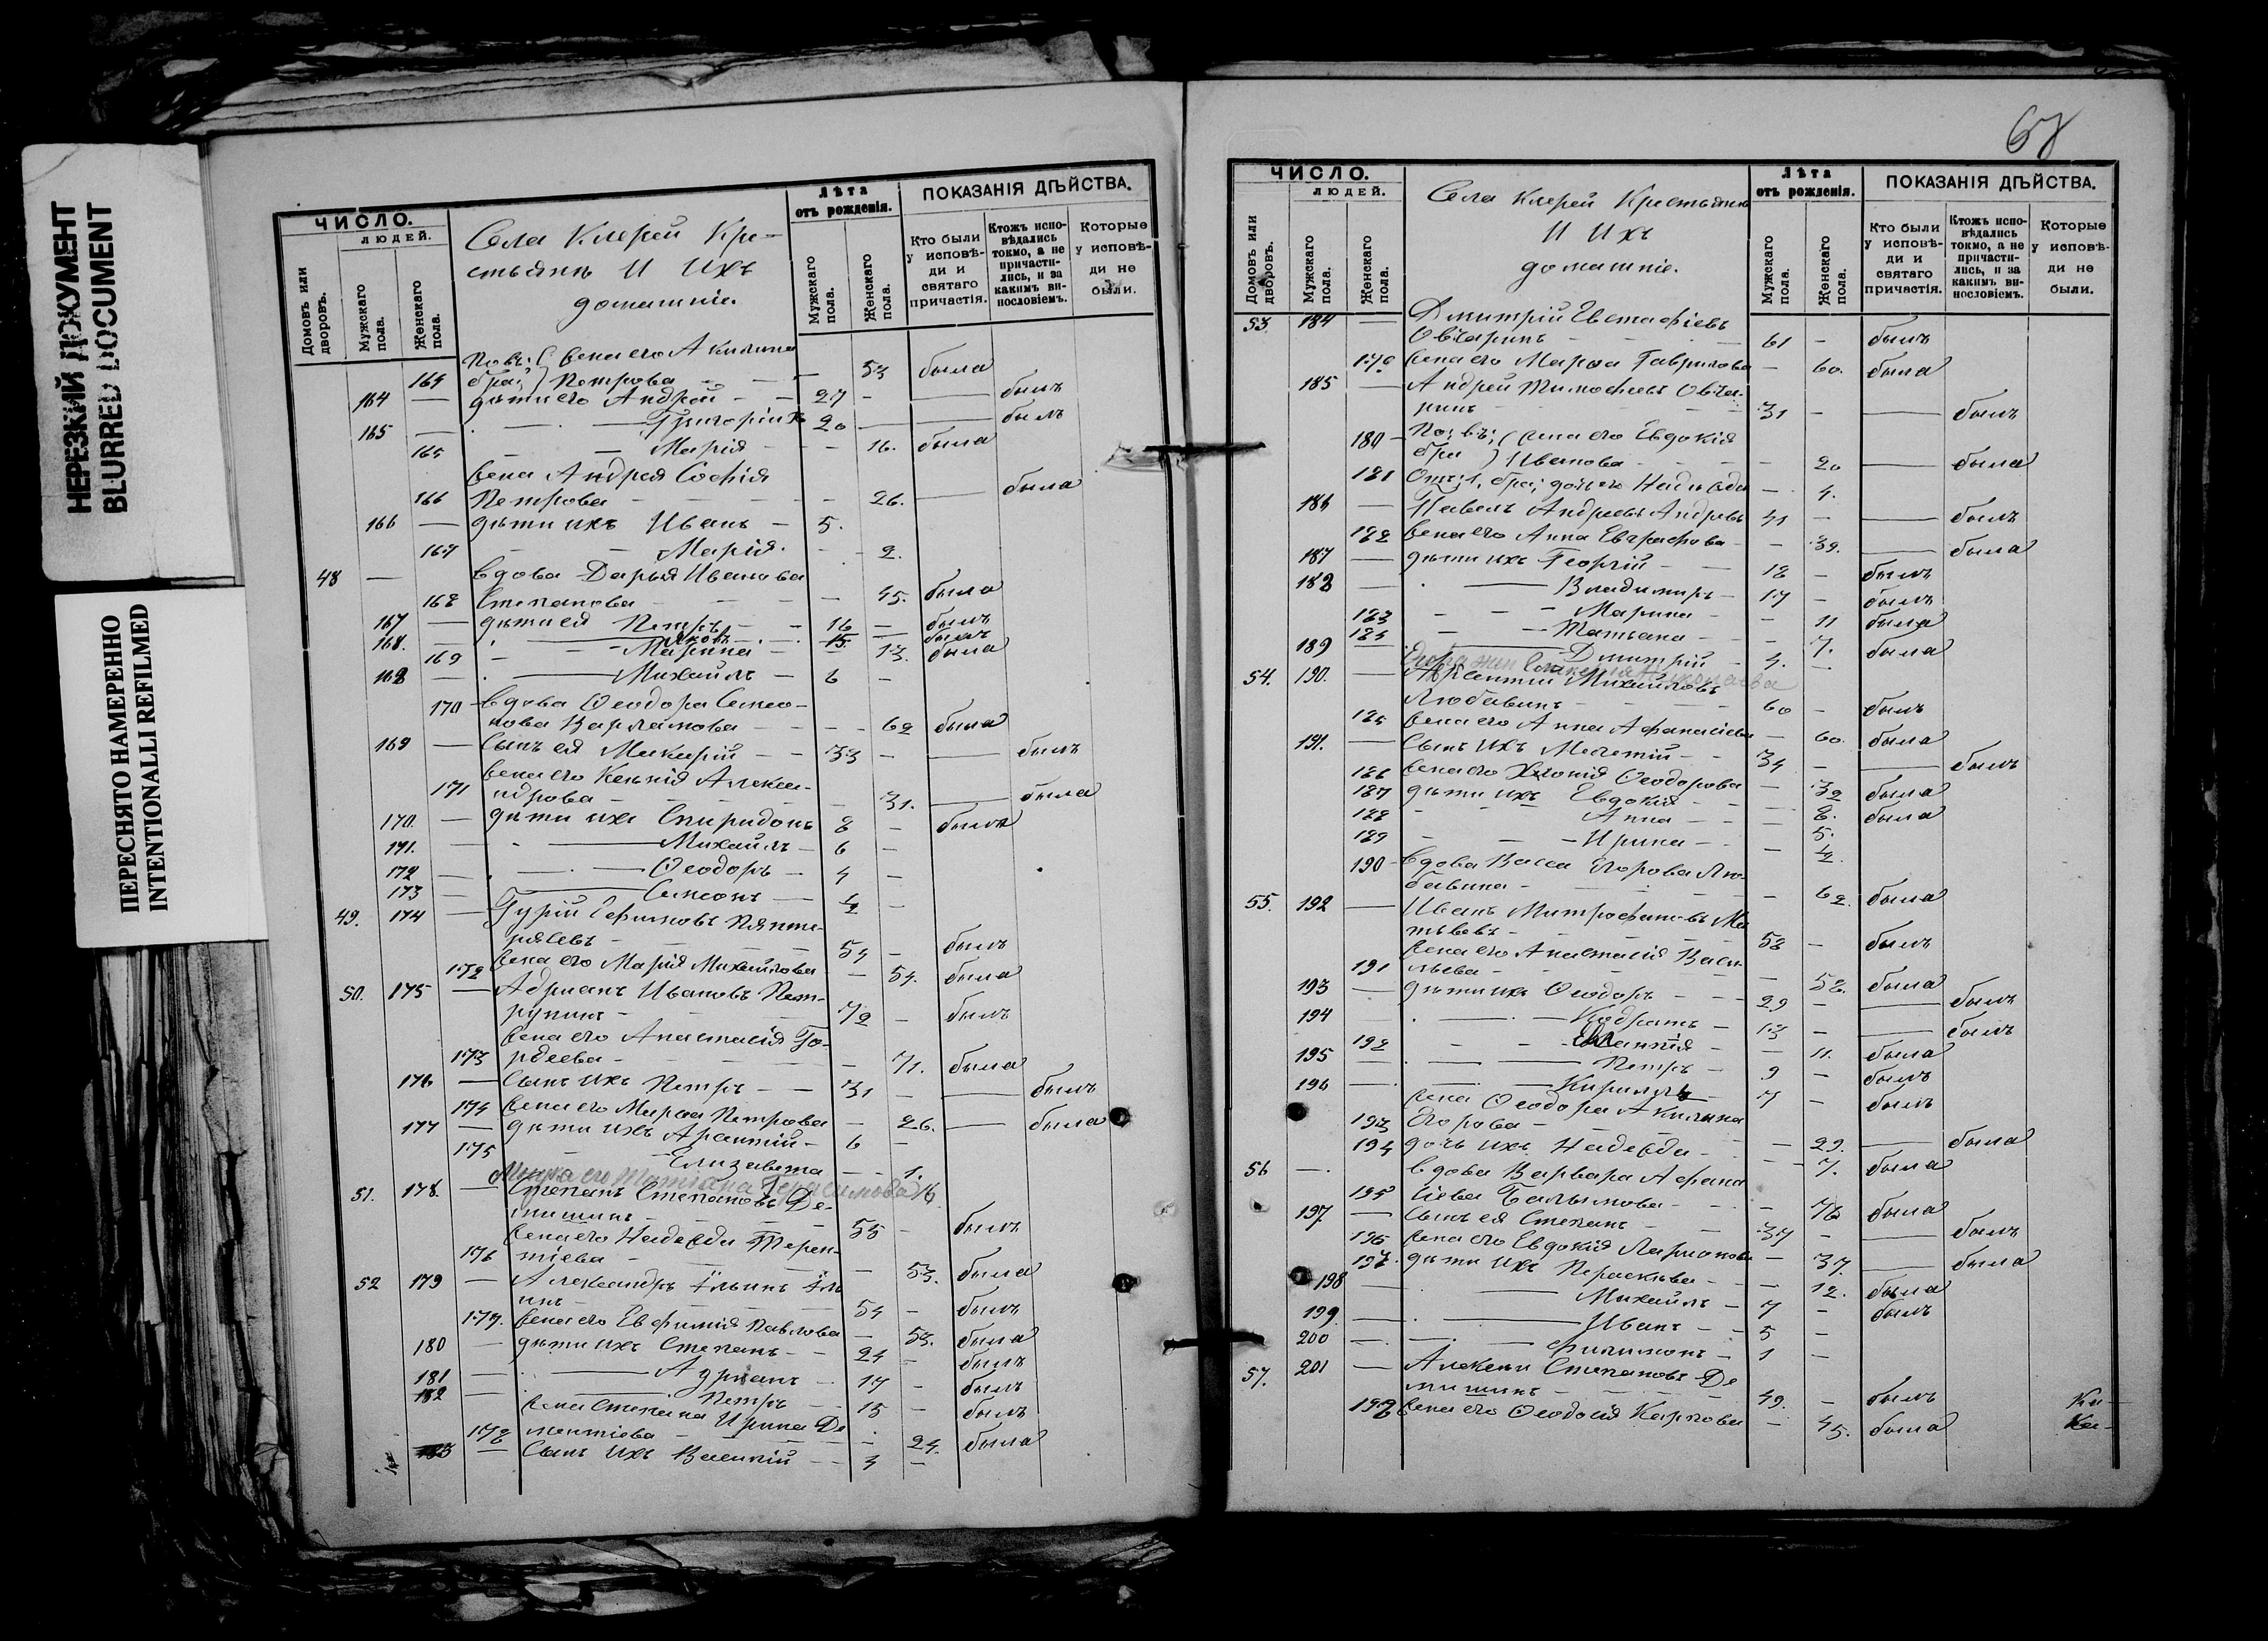 НЕРЕЗКИЙ ДОКУМЕНТ
BLURRED DOCUMENT
ПЕРЕСНЯТО НАМЕРЕННО
INTENTIONALLI REFILMED
ЧИСЛО.
ЛЮДЕЙ.
Домовъ или дворовъ.
Мужскаго пола.
Женскаго пола.
Села Клерей Кре-
стьяне И Ихъ
домашніе.
Лѣта
отъ рожденія.
Мужскаго пола.
Женскаго пола.
ПОКАЗАНІЯ ДѢЙСТВА.
Кто были у исповѣ-ди и святаго причастія.
Ктожъ испо-вѣдались токмо, а не причасти-лись, и за какимъ ви-нословіемъ.
Которые у исповѣ-ди не были.
Повт: жена его Акилина
164 бра: Петрова - - 53 была
164 — дѣти его Андрей - - 27 - — былъ
165 — Григорій 20 — былъ
165 — Марія - - 16. была
жена Андрея Софія
166 Петрова - - 26. — была
166 — дѣти ихъ Иванъ - 5.
167 - Марія. - 2.
48 — вдова Дарья Иванова
168 Степанова - - 45. была
167 — дѣти ея Петръ - - 16 — былъ
168. — Яковъ - 15. — былъ
169 - - Марина - - 13. была
168 — Михаилъ - 6 -
170 вдова Ѳеодора Симео-
нова Варламова - - 62 была
169 — сынъ ея Макарій - - 33 - — былъ
жена его Ксенія Алексан-
171 дрова - - 31. — была
170. — дѣти ихъ Спиридонъ 8 - былъ
171. — Михаилъ - 6 -
172 — Ѳеодоръ - 4 -
173 — Симеонъ - ½ -
49. 174 — Гурій Ефимовъ Пянте-
рясевъ - - 54 - былъ
172 жена его Марія Михайлова - 54. была
50. 175 — Адріанъ Ивановъ Пет-
рунинъ - - 72 - былъ
жена его Анастасія Го-
173 рдѣева - - 71. была
176 — сынъ ихъ Петръ - - 31 - — былъ
174 жена его Марѳа Петрова - 26. — была
177 — дѣти ихъ Арсентій - 6 -
175 - Елизавета - - 1.
Мачиха его Татіана Герасимова 76
51. 178. — Степанъ Степановъ Де-
мишинъ - - 55 - былъ
жена его Надежда Терен-
176 тіева - - 53. была
52 179 — Александръ Ильинъ Иль
инъ - - 54 - былъ
177. жена его Евфимія Павлова - 53. была
180 — дѣти ихъ Степанъ - - 24 - былъ
181 — Адріанъ - 17 - былъ
182 — Петръ - 15 - былъ
жена Степана Ирина Де
178 ментіева - - 24. была
183 — сынъ ихъ Василій - - 4 -
67
ЧИСЛО.
ЛЮДЕЙ.
Домовъ или дворовъ.
Мужскаго пола.
Женскаго пола.
Села Клерей Крестьяне
И Ихъ
домашніе.
Лѣта
отъ рожденія.
Мужскаго пола.
Женскаго пола.
ПОКАЗАНІЯ ДѢЙСТВА.
Кто были у исповѣ-ди и святаго причастія.
Ктожъ испо-вѣдались токмо, а не причасти-лись, и за какимъ ви-нословіемъ.
Которые у исповѣ-ди не были.
53. 184 — Дмитрій Евстафіевъ
Овчаринъ - - 61 - былъ
179 жена его Марѳа Гаврилова - 60. была
185 — Андрей Тимофеевъ Овча-
ринъ - - 31 - — былъ
180 - По: вт: жена его Евдокія
бра Иванова - - 20 — была
181 Отъ 1. бра; дочь его Надежда - 4.
186 — Павелъ Андреевъ Андреевъ 41 - — былъ
182 жена его Анна Евграфова - - 39. — была
187 — дѣти ихъ Георгій - - 18 - былъ
188 — Владиміръ - 17 - былъ
183 - - Марина - - 11 была
184 - - Татьана - - 7. была
189 — Дмитрій - 4. -
54. 190. — Арсентій Михайловъ
Любавинъ - - 60 - былъ
185 жена его Анна Афанасіева - 60. была
191. — сынъ ихъ Мелетій - - 34 - — былъ
186 жена его Хіонія Ѳеодорова - 32 была
187 дѣти ихъ Евдокія - - 8. была
188 - - Анна - - 5.
189 - - Ирина - - ½.
190 - вдова Васса Егорова Лю-
бавина - - 62. была
55. 192 — Иванъ Митрофановъ Ма
твѣевъ - - 58 - былъ
жена его Анастасія Васи
191 льева - - 58. была
193 — дѣти ихъ Ѳеодоръ - - 29 - — былъ
194 — Кодратъ - 13 - — былъ
192 - - - 11. была
195 — Петръ - 9 - былъ
196 — Кириллъ - 7 - былъ
жена Ѳеодора Акилина
193 Егорова - - 29. — была
194 дочь ихъ Надежда - - 7. была
56 —. вдова Варвара Афана
195 сіева Балымова - - 76 была
197 — сынъ ея Степанъ - - 37 - — былъ
196 жена его Евдокія Ларіонова - 37. — была
197. дѣти ихъ Параскева - - 12. была
198 — Михаилъ - 7 - былъ
199. — Иванъ - - 5 -
200 — Филимонъ - 1 -
57. 201 — Алексѣй Степановъ Де
мишинъ - - 49. - былъ
198 жена его Ѳеодосія Карпова - 45. была